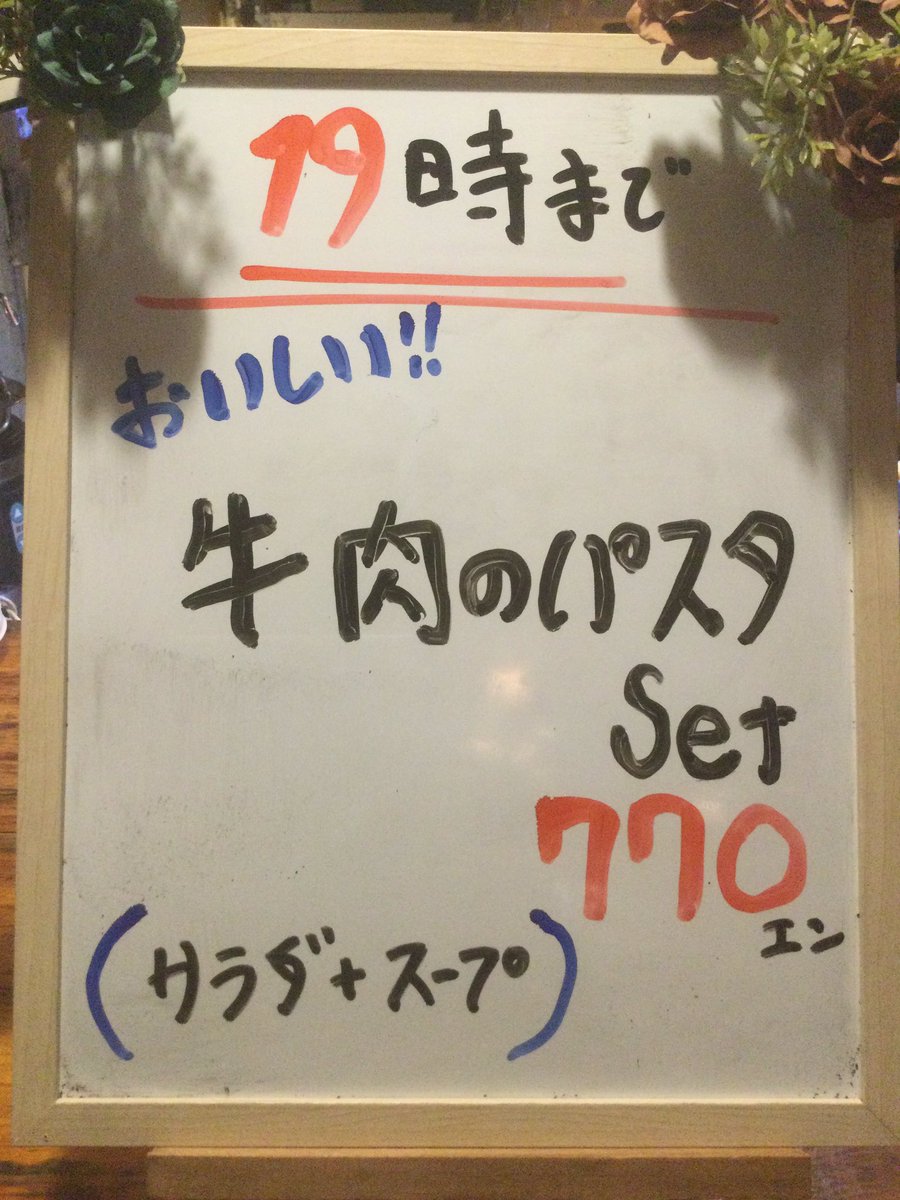 19時まで
おいしい!!
牛肉のパスタ
Set
770
エン
(サラダ+スープ)